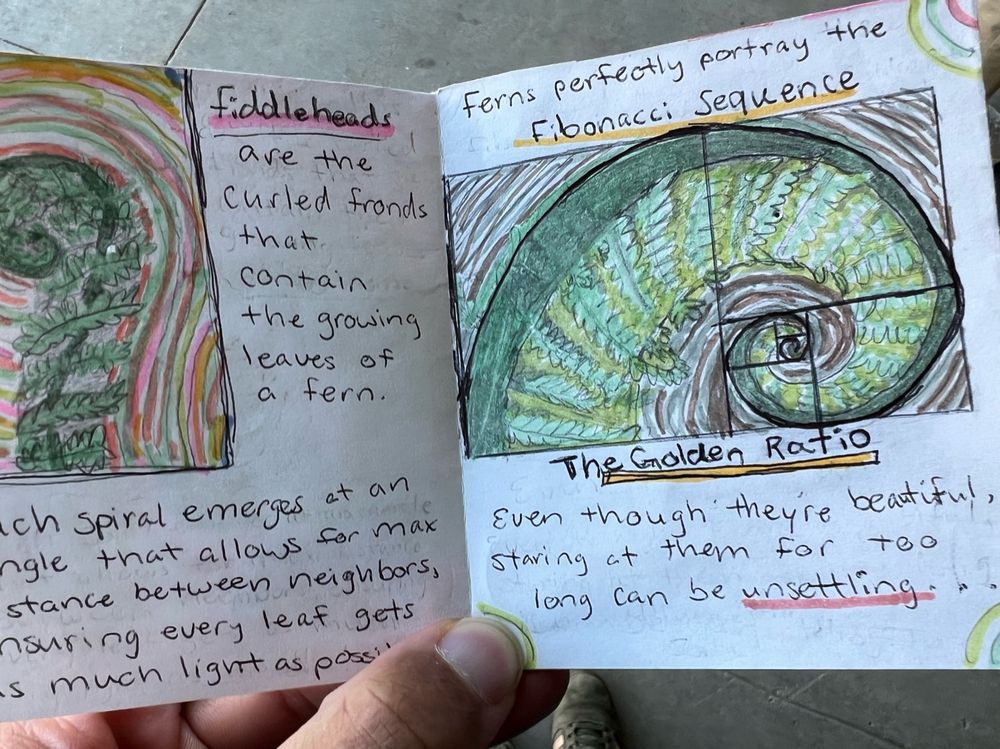 fiddleheads
are the
curled fronds
that
contain
the growing
leaves of
a fern.
spiral emerges at an
that allows for max
between neighbors,
every leaf gets
much light as
Ferns perfectly portray the
Fibonacci Sequence
The Golden Ratio
Even though they're beautiful,
staring at them for too
long can be unsettling...